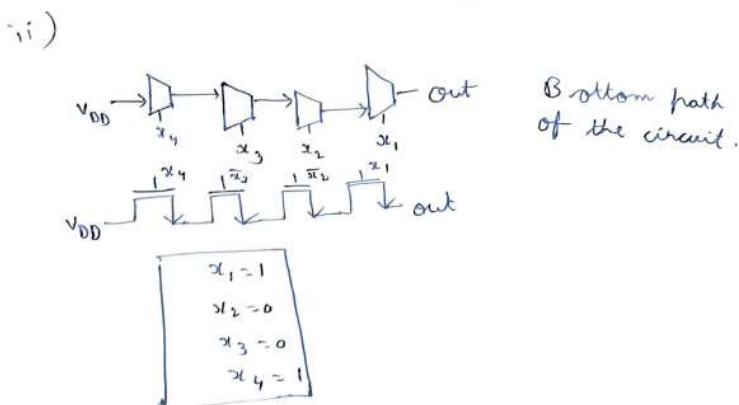 ii)
V_DD x₄ x₃ x₂ x₁ out
Bottom path
of the circuit.
V_DD x₄ x̄₃ x̄₂ x₁ out
x₁ = 1
x₂ = 0
x₃ = 0
x₄ = 1